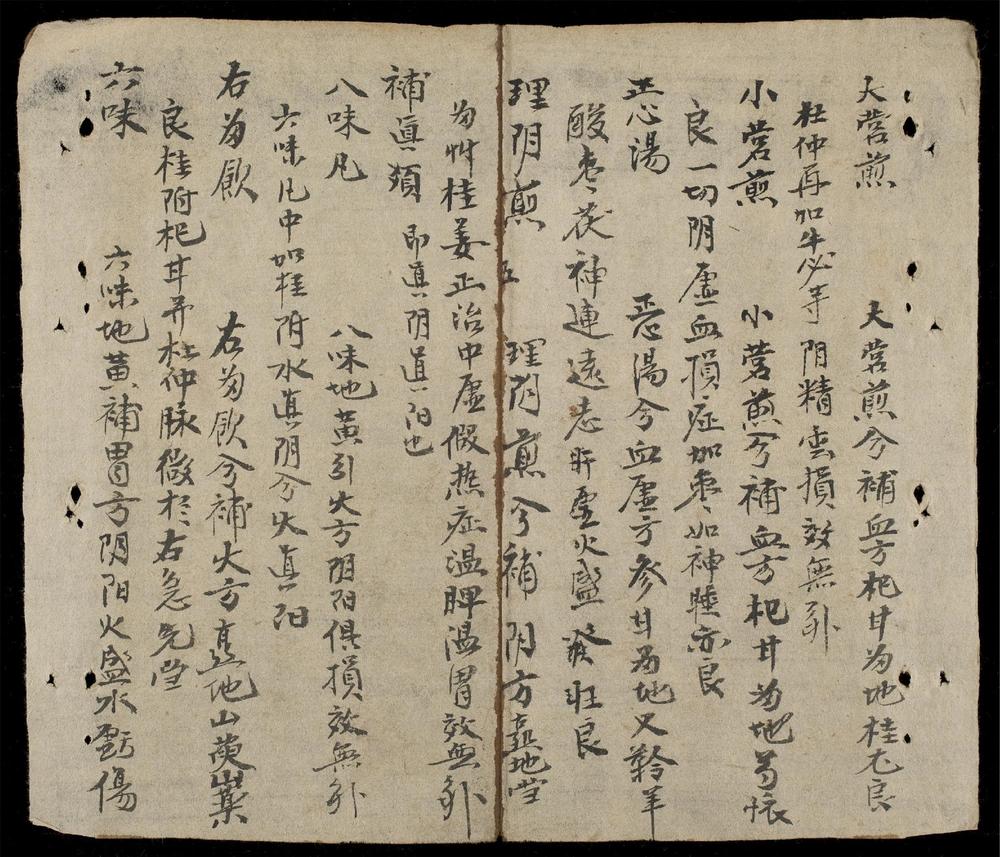 大营煎 大营煎兮補血方杞甘为地桂尢良
杜仲再加牛必等阴精雲損效無外
小营煎 小营煎兮補血方杞甘为地芍恢
良一切阴虚血損症加枣如神睡亦良
正心湯 恶湯兮血虚方參甘为地又羚羊
酸枣茯神連遠志肝虚火盛發狂良
理阴煎 五 理阴煎兮補阴方熟地当
为艸桂姜正治中虚假热症温脾温胃效無外
補真類 即真阴真阳也
八味凡 八味地黄引火方阴阳俱損效無外
六味凡中加桂附水真阴兮火真阳
右为飲 右为飲兮補火方熟地山萸山藥
良桂附杞甘并杜仲脉微於右急先当
六味 六味地黄補胃方阴阳火盛水虧傷